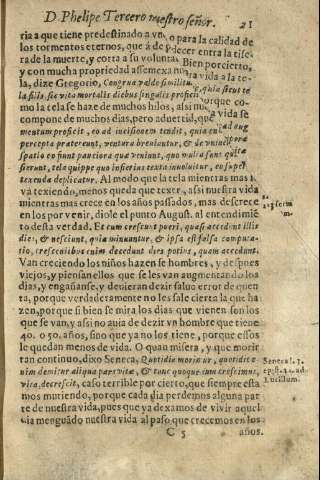 D. Phelipe Tercero nuestro señor. 21
ria a que tiene predestinado a vno, o para la calidad de
los tormentos eternos, que á de
ra de la muerte, y corta a su volun Bien por cierto,
y con mucha propriedad assemexa nuestra vida a la te-
la, dize Gregorio, Congrua valde similitu
la filis, sic vita mortalis diebus singulis
mo la tela se haze de muchos hilos, assi nu
compone de muchos dias, pero aduertid, que
mentum proficit, eo ad incisionem tendit, quia cu
percepta pratereunt, ventura breuiantur, & de vniuer
spatio eo fiunt pauciora quæ veniunt, quo multa sunt quæ
sierunt, tela quippe quo inferius texta inuoluitur, eo super
texenda deplicatur. Al modo que la tela mientras mas
va texiendo, menos queda que texer, assi nuestra vida
mientras mas crece en los años passados, mas descrece
en los por venir, diole el punto August. al entendimiẽ
to desta verdad. Et cum crescunt pueri, quasi accedunt illis
dies, & nesciunt, quia minuuntur, & ipsa est falsa computa-
tio, crescentibus enim decedunt dies potius, quam accedunt.
Van creciendo los niños hazen se hombres, y despues
viejos, y piensan ellos que se les van augmentando los
dias, y engañanse, y deuieran dezir falso error de quen
ta, porque verdaderamente no les sale cierta la que ha
zen, porque si bien se mira los dias que vienen son los
que se van, y assi no auia de dezir vn hombre que tiene
40. o 50. años, sino que ya no los tiene, porque essos
le quedan menos de vida. O quan misera, y que morir
tan continuo, dixo Seneca, Quotidie morimur, quotidie e
nim demitur aliqua pars vitæ, & tunc quoque cum crescimus,
vita decrescit, caso terrible por cierto, que siempre esta
mos muriendo, porque cada dia perdemos alguna par
te de nuestra vida, pues que ya dexamos de viuir aquel
dia menguãdo nuestra vida al paso, que crecemos en los
C 5 años.
Seneca l. 3.
epist. 24. ad
Lucillum.